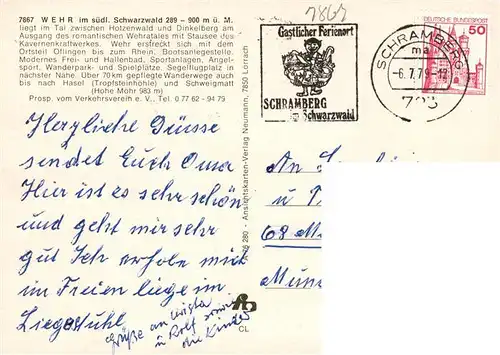 7867 WEHR im südl. Schwarzwald 289 – 900 m ü. M.
liegt im Tal zwischen Hotzenwald und Dinkelberg am
Ausgang des romantischen Wehratales mit Stausee des
Kavernenkraftwerkes. Wehr erstreckt sich mit dem
Ortsteil Öflingen bis zum Rhein. Bootsanlegestelle.
Modernes Frei- und Hallenbad, Sportanlagen, Angel-
sport, Wanderpark - und Spielplätze, Segelflugplatz in
nächster Nähe. Über 70 km gepflegte Wanderwege auch
bis nach Hasel (Tropfsteinhöhle) und Schweigmatt
(Hohe Möhr 583 m)
Prosp. vom Verkehrsverein e. V., Tel. 0 77 62 - 94 79
A 76 280 - Ansichtskarten-Verlag Neumann, 7850 Lörrach
7867
Gastlicher Ferienort
SCHRAMBERG
im Schwarzwald
SCHRAMBERG
ma
- 6. 7. 79 - 18
723
DEUTSCHE BUNDESPOST
50
Herzliche Grüsse
sendet Euch Oma
Hier ist es sehr schön
und geht mir sehr
gut Ich erhole mich
im Freien liege im
Liegestuhl
Grüße an Christa
u Rolf sowie
die Kinder
An
u
68 M
Mün
CL